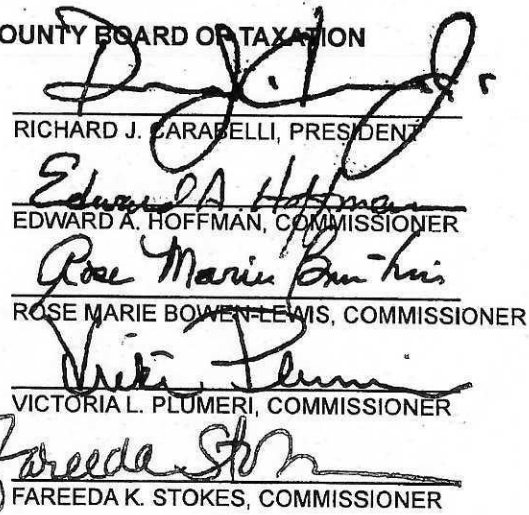 OUNTY BOARD OF TAXATION
RICHARD J. CARABELLI, PRESIDENT
Edward A. Hoffman
EDWARD A. HOFFMAN, COMMISSIONER
Rose Marie
ROSE MARIE BOWEN-LEWIS, COMMISSIONER
VICTORIA L. PLUMERI, COMMISSIONER
Fareeda
FAREEDA K. STOKES, COMMISSIONER